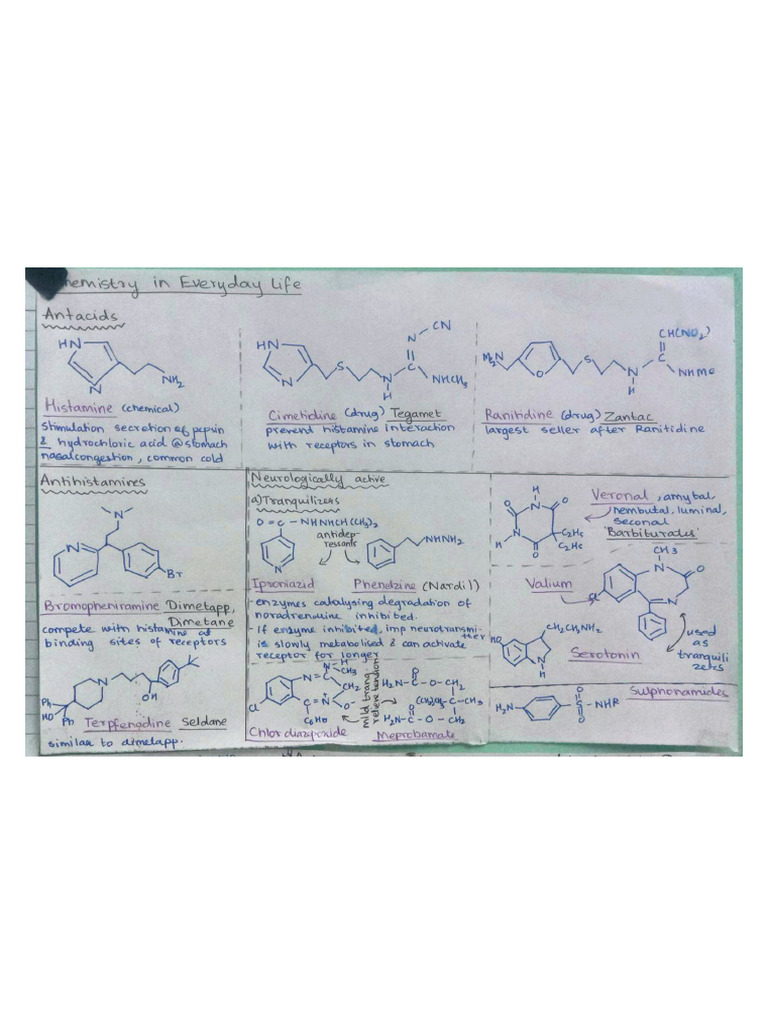 hemistry in Everyday Life
Antacids
HN
N
NH₂
Histamine (chemical)
Stimulation secretion of pepsin
& hydrochloric acid @stomach
nasal congestion, common cold
HN
N
S
N
H
N
CN
C
NHCH₃
Cimetidine (drug) Tegamet
prevent histamine interaction
with receptors in stomach
O
S
N
H
CH(NO₂)
C
NHMe
Ranitidine (drug) Zantac
largest seller after Ranitidine
Antihistamines
N
N
Br
Bromopheniramine Dimetapp,
Dimetane
compete with histamine at
binding sites of receptors
Ph
HO
Ph
N
OH
Terpfenadine Seldane
similar to dimetapp.
Neurologically active
a) Tranquilizers
O = C - NHNHCH(CH₃)₂
N
antidep-
ressants
NHNH₂
Iproniazid Phenelzine (Nardil)
- enzymes catalysing degradation of
noradrenaline inhibited.
- If enzyme inhibited, imp neurotransmi-
tter
is slowly metabolised & can activate
receptor for longer
Cl
N = C
N-H
CH₃
CH₂
C = N
O⁻
C₆H₅
Chlordiazipoxide
mild tranq
relieve tension
H₂N-C-O-CH₂
O
C-CH₃
H₂N-C-O-CH₂
O
Meprobamate
H
N
O
O
N
H
O
C₂H₅
C₂H₅
Veronal, amytal,
nembutal, luminal,
seconal
'Barbiturates'
Valium
CH₃
N
O
N
Cl
used
as
tranquili
zers
HO
CH₂CH₂NH₂
N
H
Serotonin
Sulphonamides
H₂N
O
S - NHR
O